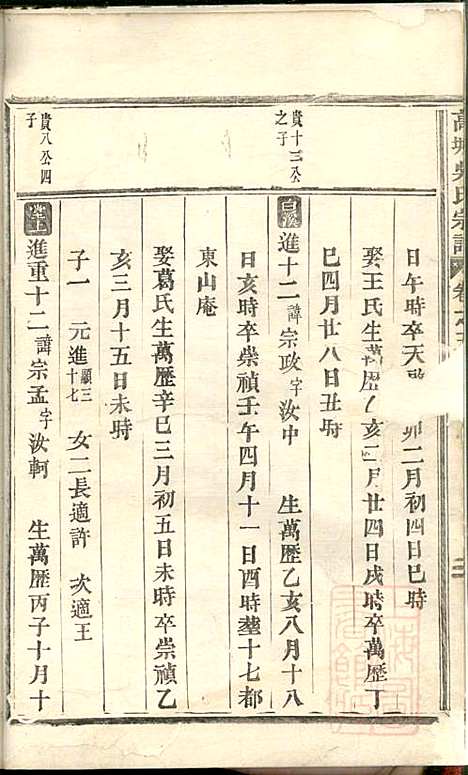 高城吳氏宗譜 卷之
日午時卒天啟 卯二月初四日巳時
娶王氏生萬歷 亥二月廿四日戌時卒萬歷丁
巳四月廿八日丑時
貴十三公之子
進十二諱宗政字汝中 生萬歷乙亥八月十八
日亥時卒崇禎壬午四月十一日酉時塟十七都
東山庵
娶葛氏生萬歷辛巳三月初五日未時卒崇禎乙
亥三月十五日未時
子一 元進 女二長適許 次適王
貴八公四子
進重十二諱宗孟字汝軻 生萬歷丙子十月十